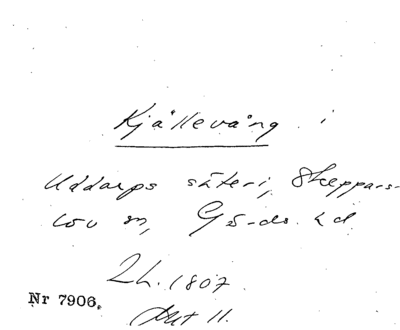 Kjällevång i
Uddarps säteri, Skeppars-
löv sn, Gärds hd
Lh. 1807.
Nr 7906.
Akt 11.